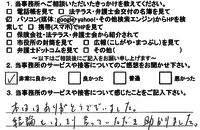 1. 当事務所へご相談いただいたきっかけを教えてください。
□ 電話帳を見て □ 法テラス・弁護士会交付の名簿を見て
☑ パソコン(媒体:google・yahoo!・その他検索エンジン)からHPを検索して □ 携帯(スマホ)でHPを見て
□ 保険会社・法テラス・弁護士会から紹介されて
□ 市役所の封筒を見て □ 広報(にしがや・まつぶし)を見て
□ 弁護士ドットコムを見て □ その他(
～以下はご相談後にご記入をお願い申し上げます～
2. 当事務所のサービスや接客についてのご感想をお聞かせ下さい。
☑ 非常に良かった □ 良かった □ 普通 □ 悪かった
3. 当事務所のサービスや接客について感じたことをご記入下さい。
ありがとうございました。
助かりました。